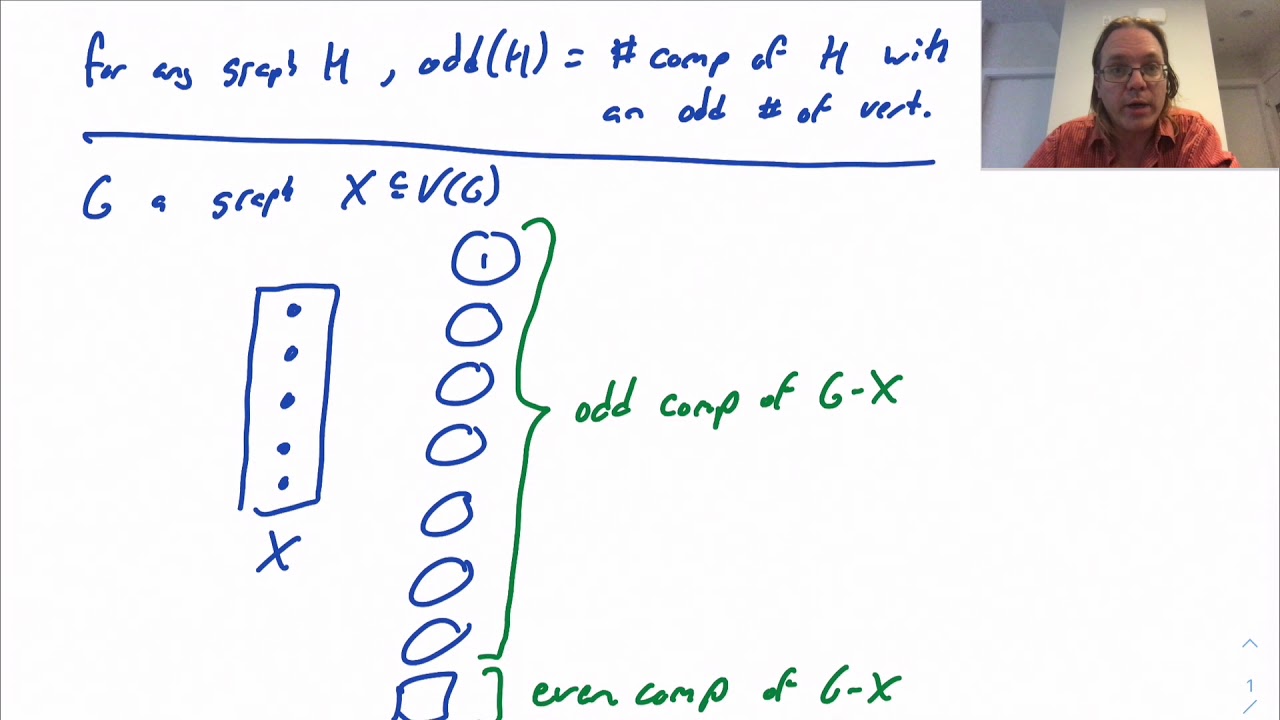 for any graph H, odd(H) = # comp of H with
an odd # of vert.
G a graph X ⊆ V(G)
1
odd comp of G-X
X
even comp of G-X
1